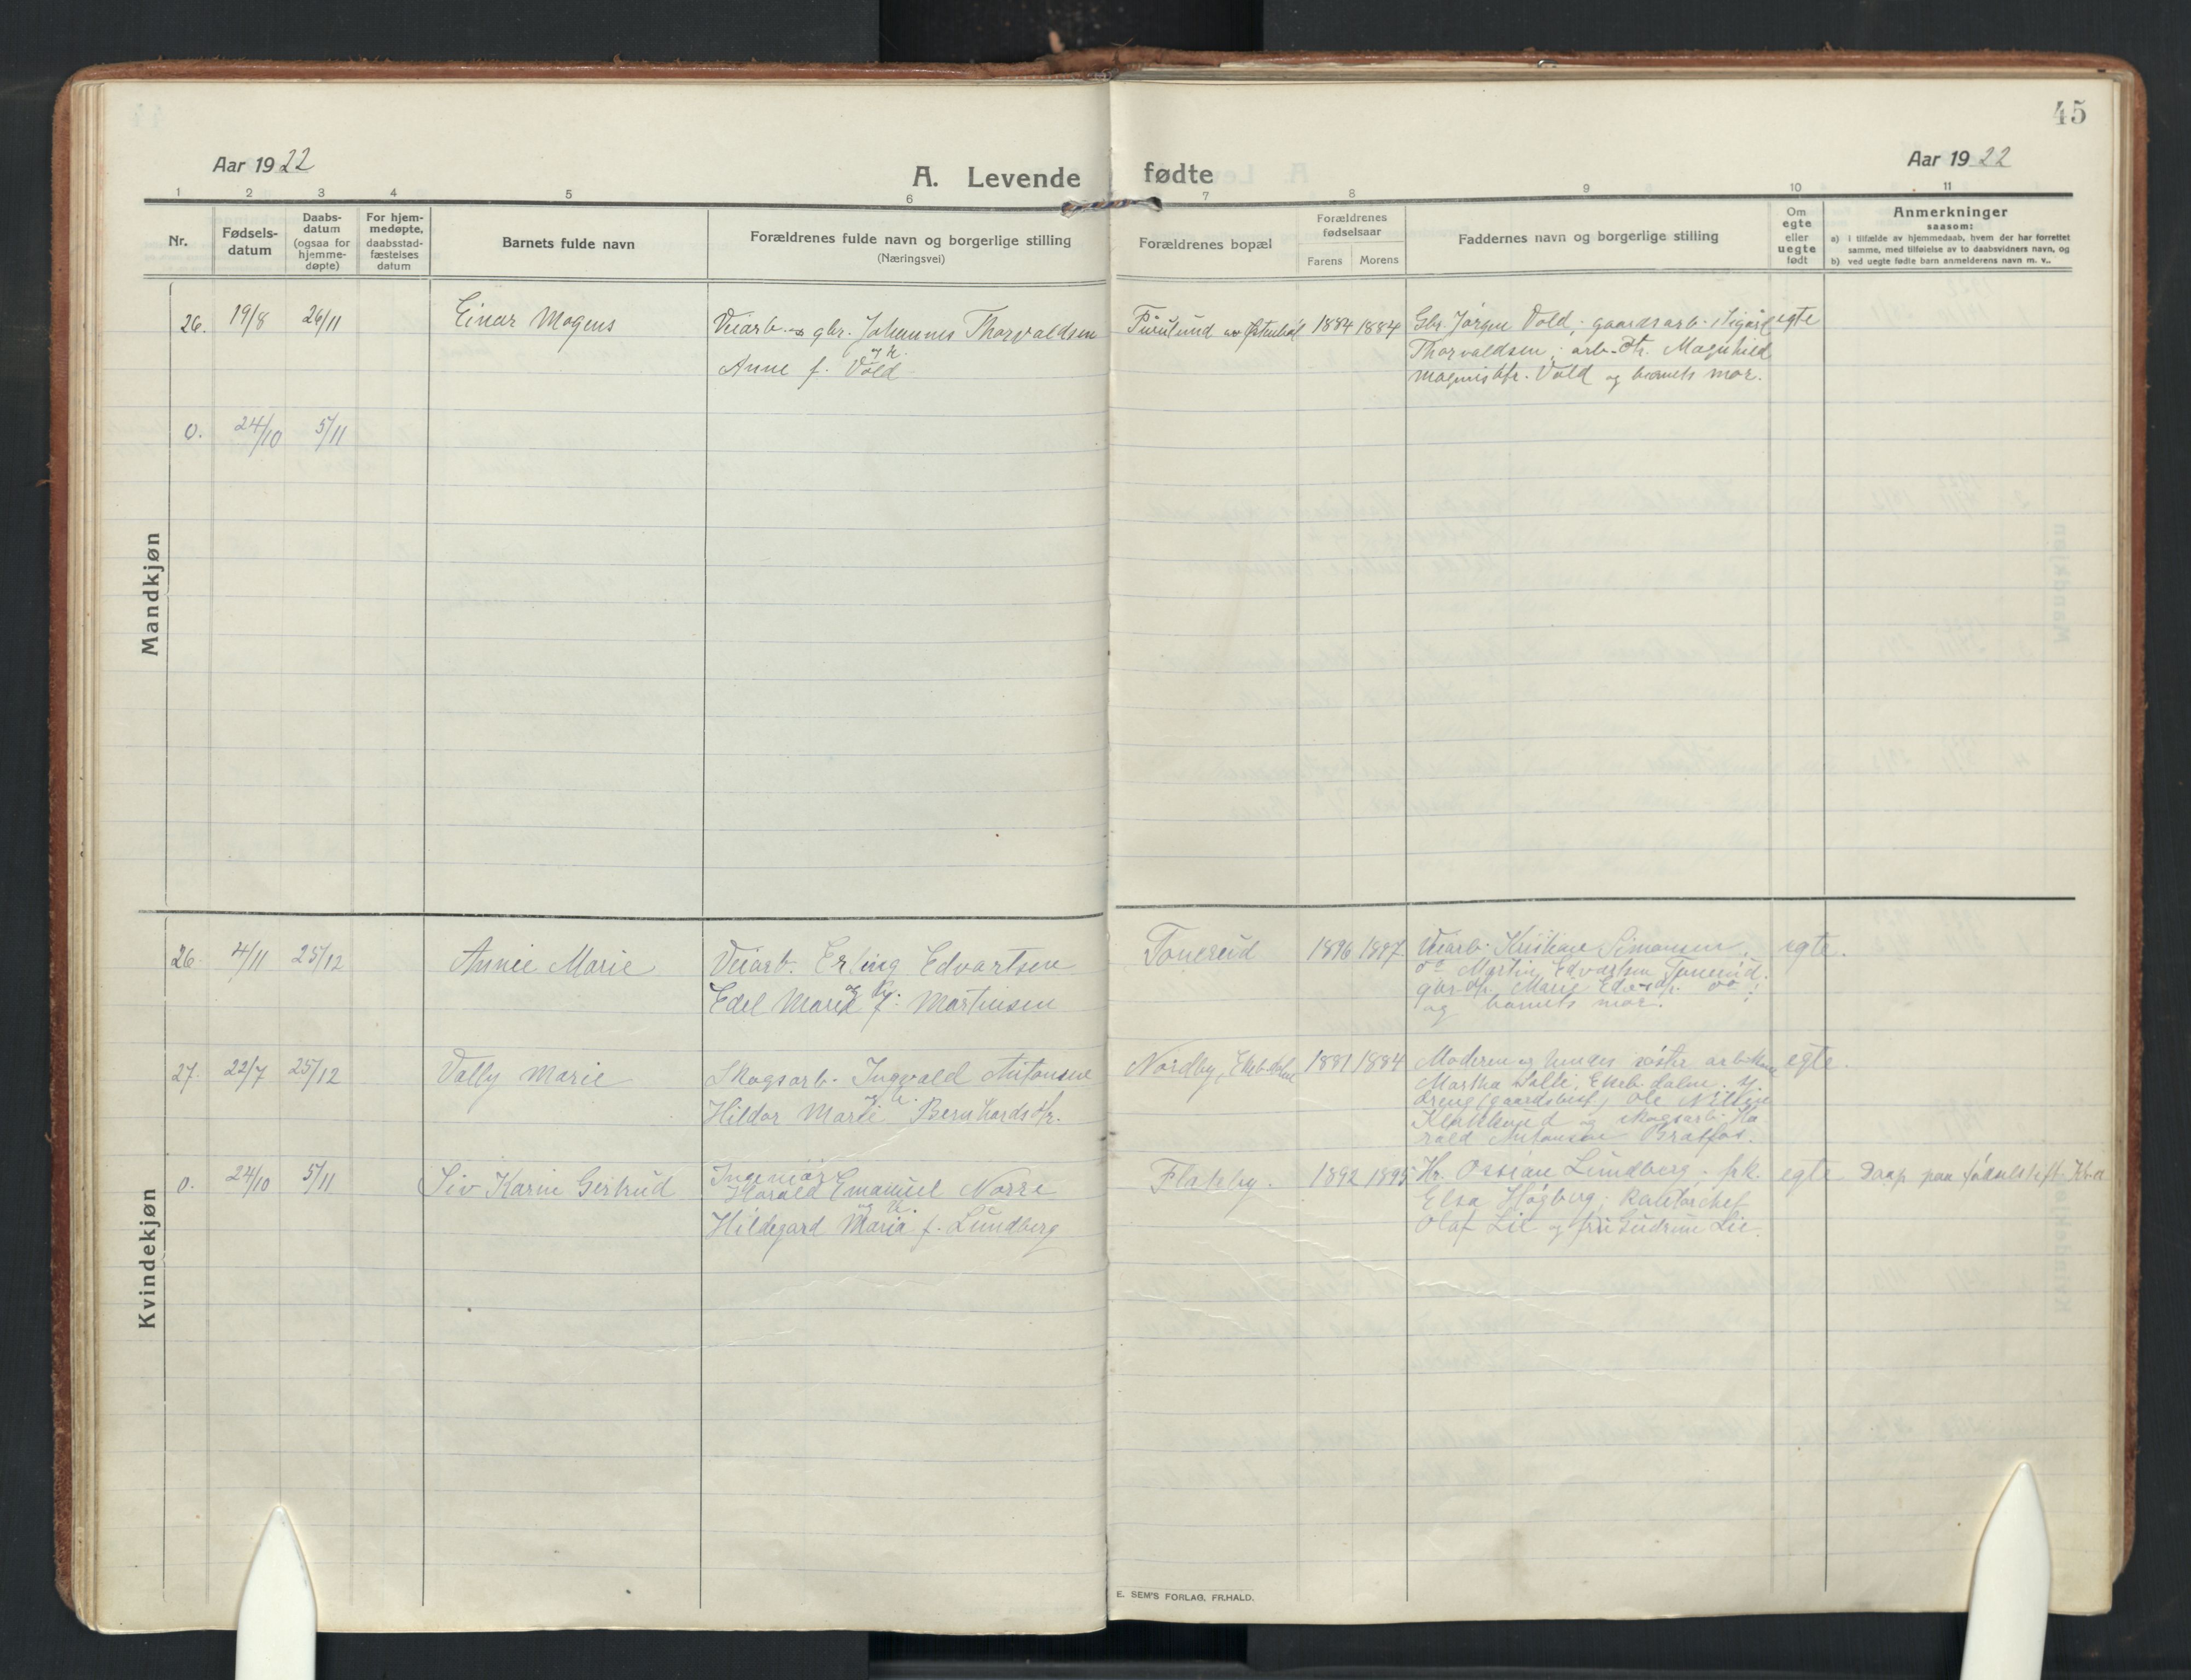 45
Aar 1922
A. Levende fødte
Aar 1922
1 2 3 4 5 6 7 8 9 10 11
Nr.
Fødsels-
datum
Daabs-
datum
(ogsaa for
hjemme-
døpte)
For hjem-
medøpte,
daabsstad-
fæstelses
datum
Barnets fulde navn
Forældrenes fulde navn og borgerlige stilling
(Næringsvei)
Forældrenes bopæl
Forældrenes
fødselsaar
Farens Morens
Faddernes navn og borgerlige stilling
Om
egte
eller
uegte
født
Anmerkninger
saasom:
a) i tilfælde av hjemmedaab, hvem der har forrettet
samme, med tilføielse av to daabsvidners navn, og
b) ved uegte fødte barn anmelderens navn m. v..
Mandkjøn
26. 19/8 26/11 Einar Mogens Veiarb. gbr. Johannes Thorvaldsen 1884 1884 Gbr. Jørgen Vold; gaardsarb. Sigurd egte
og h.
Anne f. Vold
Thorvaldsen; arb. dtr. Magnhild
Vold og barnets mor.
0. 24/10 5/11
Kvindekjøn
26. 4/11 25/12 Annie Marie Veiarb. Erling Edvartsen Tonerud 1896 1897 Veiarb. Kristian Simonsen, egte.
do Martin Edvartsen Tonerud.
og h.
Edel Marie f. Martinsen
Marie
og barnets mor.
27. 22/7 25/12 Vally Marie Skogsarb. Ingvald Antonsen Nordby, 1881 1884 Moderen og hendes søster egte.
og h.
Hildor Marie Bernhardsdtr.
Martha
dreng (gaardsbest) Ole
og skogsarb. Ha
rald Antonsen Bratfos.
0. 24/10 5/11 Siv Karin Gertrud Ingeniør Flateby. 1892 1895 Hr. Ossian Lundberg; frk. egte Daap paa fødselstift. Kr.a
Harald Emanuel Norre
Elsa Högberg;
og h.
Hildegard Maria f. Lundberg
Olaf Lie og fru Gudrun Lie.
E. SEM'S FORLAG, FR.HALD.